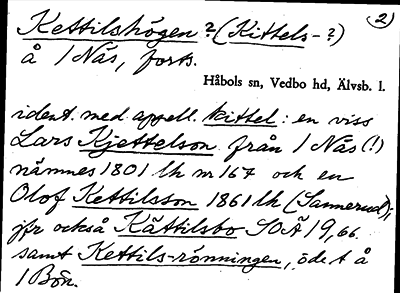 (2)
Kettilshögen ? (Kittels- ?)
å 1 Näs, forts.
Håbols sn, Vedbo hd, Älvsb. l.
ident. med appell. kittel: en viss
Lars Kjettelson från 1 Näs (!)
nämnes 1801 lk nr 167 och en
Olof Kettilsson 1861 lk (Sannerud);
jfr också Kättilsbo SOÄ 19, 66.
samt Kettils-rönningen, öde t å
1 Bön.